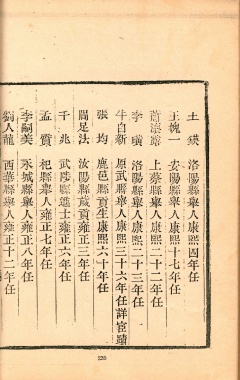 王 瑛 洛陽縣舉人康熙四年任
王槐一 安陽縣舉人康熙十七年任
蕭 上蔡縣舉人康熙二十二年任
李 璜 洛陽縣舉人康熙二十三年任
牛自新 原武縣舉人康熙三十六年任詳宦蹟
張 均 鹿邑縣貢生康熙六十年任
閻足法 汝陽縣歲貢雍正二年任
千 兆 武陟縣進士雍正六年任
孟 賨 杞縣舉人雍正七年任
李嗣美 永城縣舉人雍正八年任
人龍 西華縣舉人雍正十二年任
220